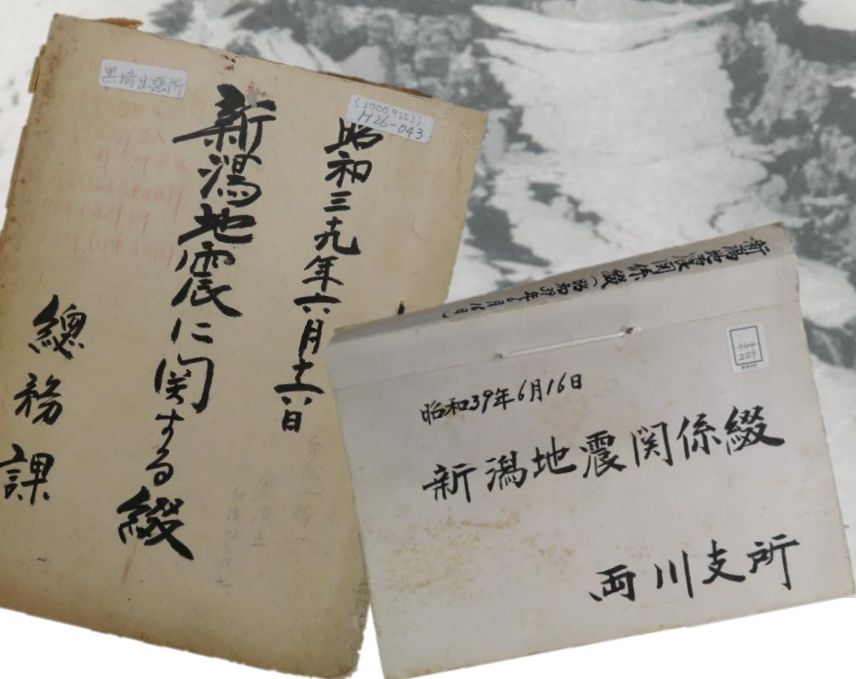 黒埼出張所
(20009553)
H26-043
昭和三九年六月十六日
新潟地震に関する綴
總務課
新潟地震関係綴(昭和39年6月16日)
昭和39年6月16日
新潟地震関係綴
両川支所